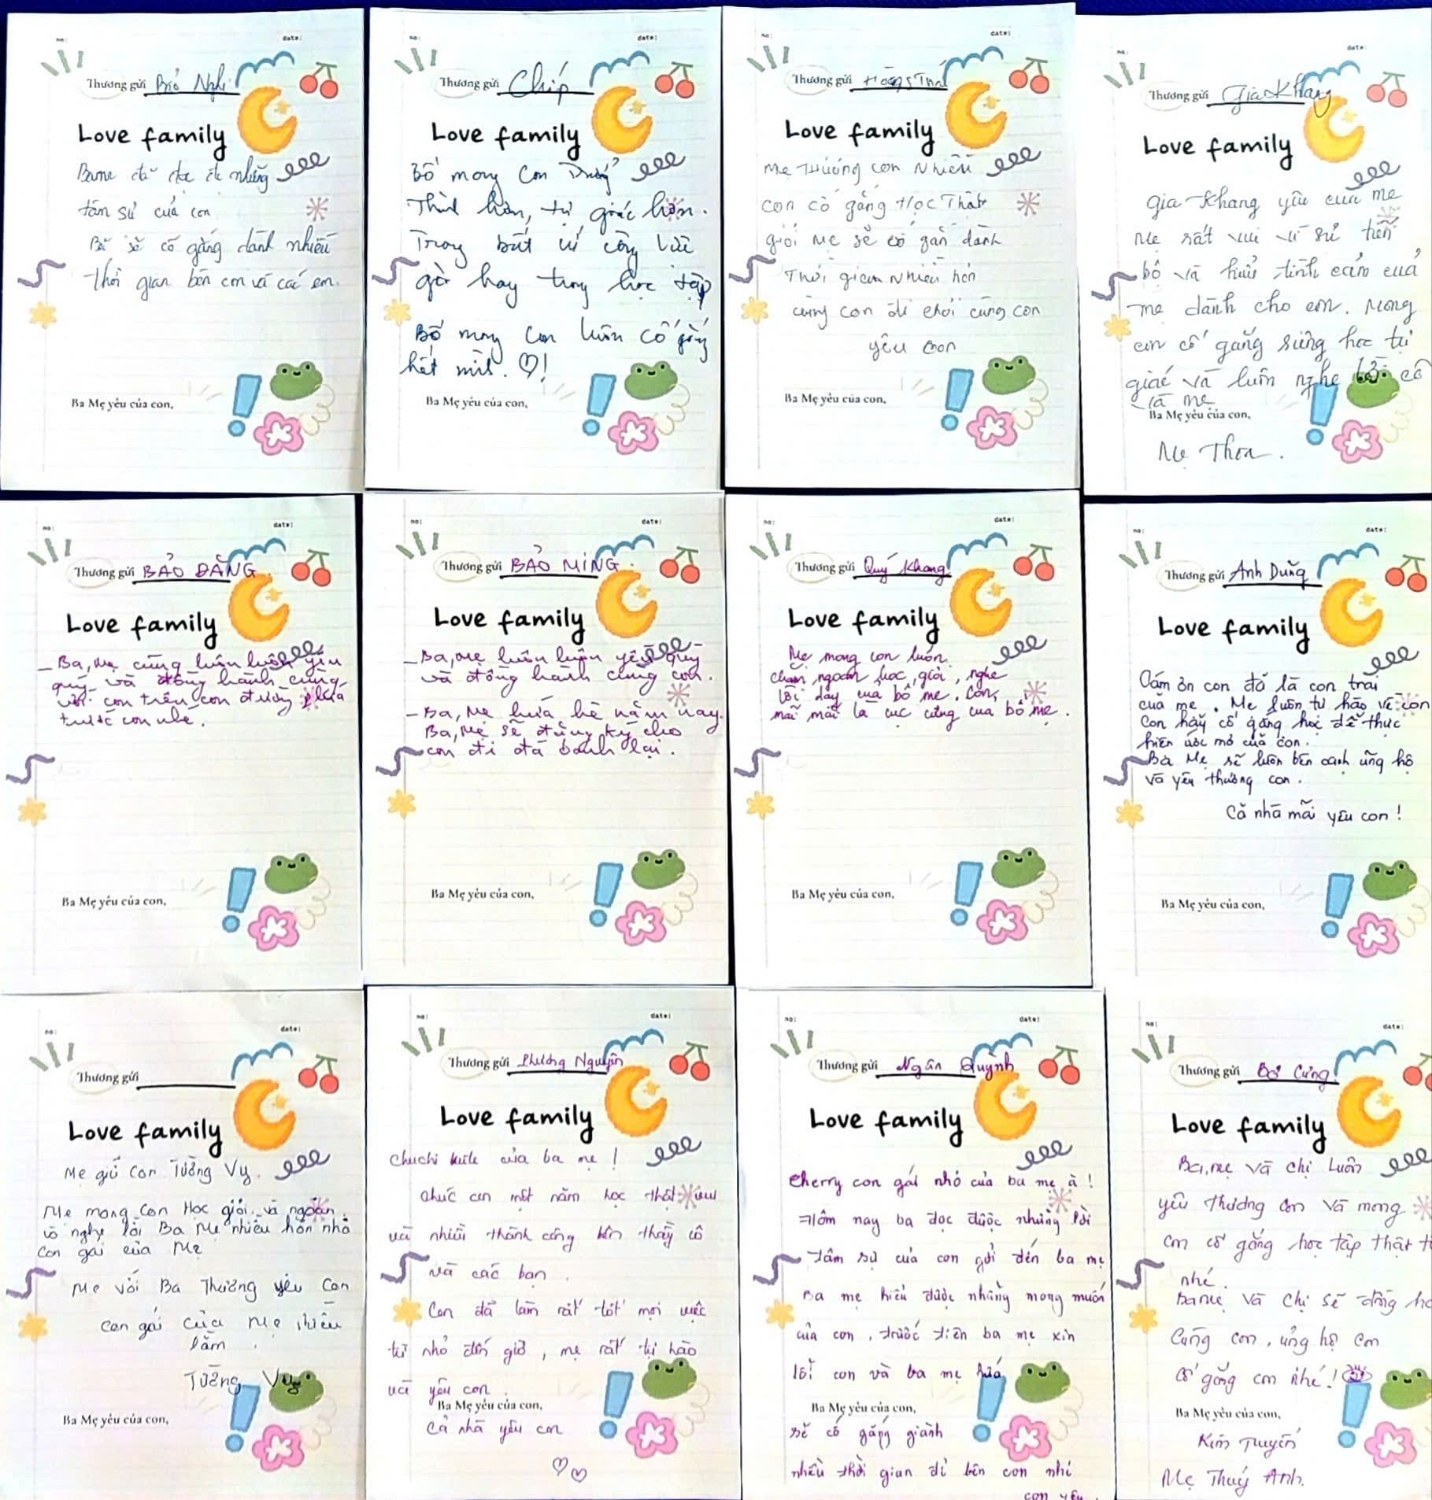 no:
date:
Thương gửi Bảo Nghi
Love family
Bame đã đọc đc những
tâm sự của con
Ba sẽ cố gắng dành nhiều
thời gian bên con và các em.
Ba Mẹ yêu của con,
date:
Thương gửi Chíp
Love family
Bố mong con
Thình hơn, tự giác hơn.
Trong bất cứ công việc
gì hay trong học tập
Bố mong con luôn cố gắng
hết mình. ♡!
Ba Mẹ yêu của con,
no:
date:
Thương gửi Hồng Thái
Love family
Mẹ Thương con Nhiều
con cố gắng Học Thật
giỏi Mẹ sẽ cố gắn dành
Thời gian Nhiều hơn
cùng con đi chơi cùng con
yêu con
Ba Mẹ yêu của con,
no:
date:
Thương gửi Gia Khang
Love family
Gia Khang yêu của mẹ
Mẹ rất vui vì sự tiến
bộ và hiểu tình cảm của
mẹ dành cho con. Mong
con cố gắng siêng học tự
giác và luôn nghe lời cô
và mẹ
Ba Mẹ yêu của con,
Mẹ Thoa.
no:
date:
Thương gửi BẢO ĐĂNG
Love family
_ Ba, Mẹ cũng luôn luôn yêu
quý và đồng hành cùng
với con trên con đường phía
trước con nhé.
Ba Mẹ yêu của con,
no:
date:
Thương gửi BẢO MING.
Love family
_ Ba, Mẹ luôn luôn yêu quý
và đồng hành cùng con.
_ Ba, Mẹ hứa hè năm nay.
Ba, Mẹ sẽ đăng ký cho
con đi đá banh lại.
Ba Mẹ yêu của con,
no:
date:
Thương gửi Quý Khang
Love family
Mẹ mong con luôn
chăm, ngoan, học, giỏi, nghe
lời dạy của bố mẹ. Con
mãi mãi là cục cưng của bố mẹ.
Ba Mẹ yêu của con,
no:
date:
Thương gửi Anh Dũng
Love family
Cảm ơn con đã là con trai
của mẹ. Mẹ luôn tự hào về con
Con hãy cố gắng học để thực
hiện ước mơ của con.
Ba Mẹ sẽ luôn bên cạnh ủng hộ
và yêu thương con.
Cả nhà mãi yêu con!
Ba Mẹ yêu của con,
no:
date:
Thương gửi
Love family
Mẹ gửi Con Tường Vy.
Mẹ mong con Học giỏi và ngoan
và nghe lời Ba Mẹ nhiều hơn nhé
con gái của Mẹ
Mẹ với Ba Thương yêu Con
con gái của Mẹ nhiều
lắm.
Tường Vy
Ba Mẹ yêu của con,
no:
date:
Thương gửi Phương Nguyên
Love family
Chuchi kute của ba mẹ!
chúc con một năm học thật vui
và nhiều thành công bên thầy cô
và các bạn.
Con đã làm rất tốt mọi việc
từ nhỏ đến giờ, mẹ rất tự hào
và yêu con.
Ba Mẹ yêu của con,
Cả nhà yêu con
♡♡
no:
date:
Thương gửi Ngân Quỳnh
Love family
Cherry con gái nhỏ của ba mẹ à!
Hôm nay ba đọc được những lời
tâm sự của con gửi đến ba mẹ
Ba mẹ hiểu được những mong muốn
của con, trước tiên ba mẹ xin
lỗi con và ba mẹ hứa
Ba Mẹ yêu của con,
sẽ cố gắng giành
nhiều thời gian để bên con nhé
con yêu.
no:
date:
Thương gửi Bơ Cưng
Love family
Ba, mẹ và chị luôn
yêu thương con và mong
con cố gắng học tập thật
nhé.
Ba mẹ và chị sẽ đồng
cùng con, ủng hộ con
cố gắng con nhé!
Ba Mẹ yêu của con,
Kim Tuyến
Mẹ Thuý Anh.